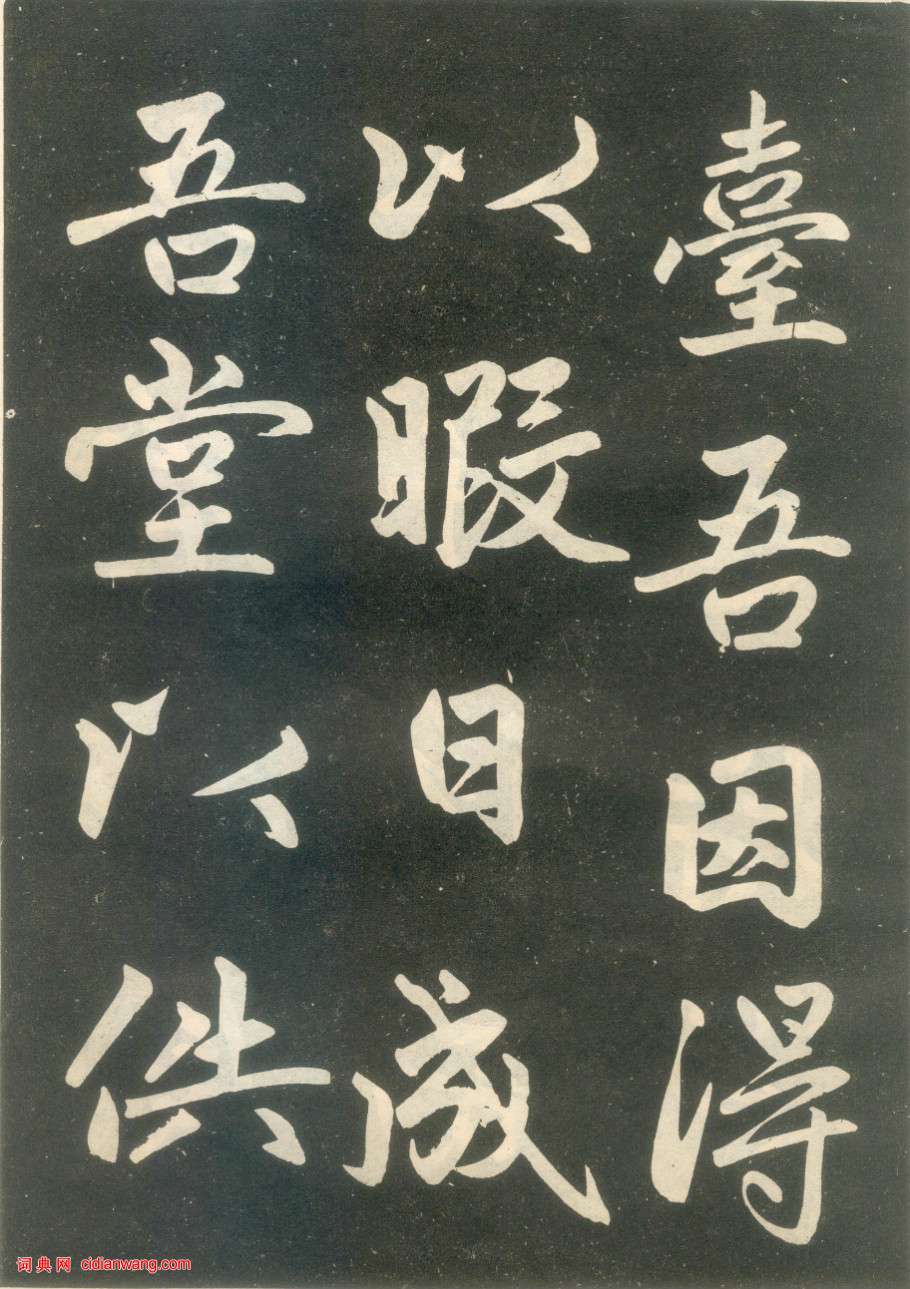 臺吾因得
以暇日成
吾堂以供
词典网 cidianwang.com